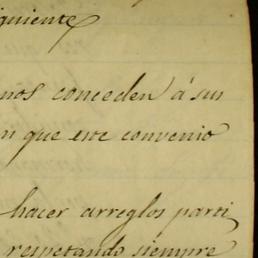 guiente
nos conceden á sus
n que este convenio
hacer arreglos parti
respetando siempre